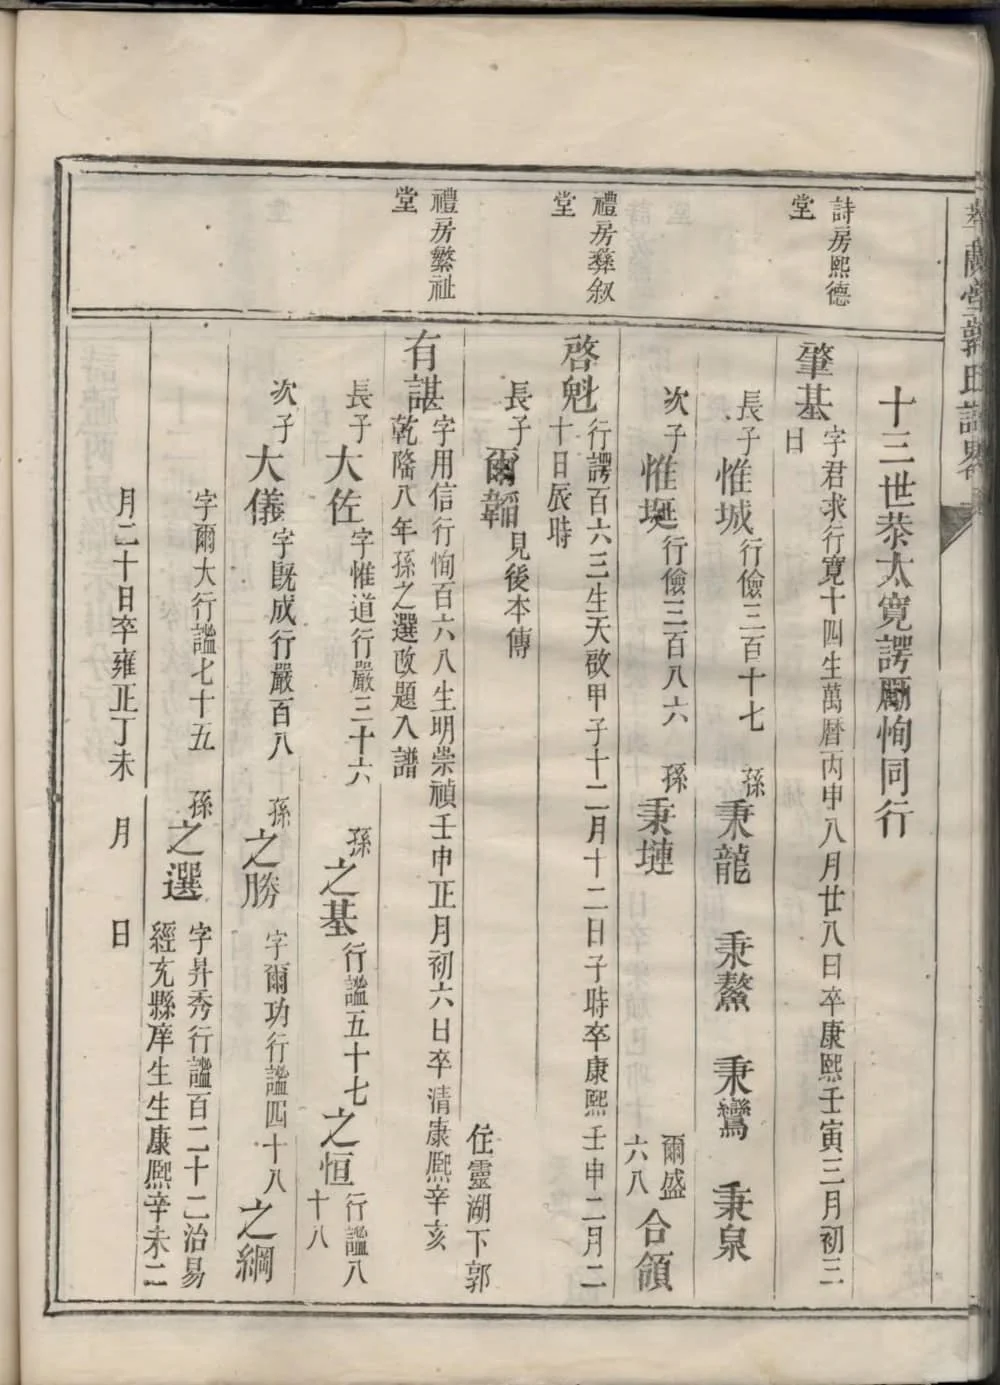 萼堂郭氏譜畧
十三世恭太寬諤勵恂同行
詩房熙德
堂
肇基
字君求行寬十四生萬曆丙申八月廿八日卒康熙壬寅三月初三
日
長子惟城行儉三百十七 孫秉龍 秉鰲 秉鸞 秉泉
次子惟埏行儉三百八六 孫秉㙻 爾盛
六八 合領
禮房彝敘
堂
啓魁
行諤百六三生天啟甲子十二月十二日子時卒康熙壬申二月二
十日辰時
長子爾韜見後本傳
住靈湖下郭
禮房繁祉
堂
有諶
字用信行恂百六八生明崇禎壬申正月初六日卒清康熙辛亥
乾隆八年孫之選改題入譜
長子大佐字惟道行嚴三十六 孫之基行謐五十七之恒行謐八
十八
次子大儀字既成行嚴百八 孫之勝字爾功行謐四十八之綱
字爾大行謐七十五 孫之選字昇秀行謐百二十二治易
經充縣庠生生康熙辛未二
月二十日卒雍正丁未 月 日